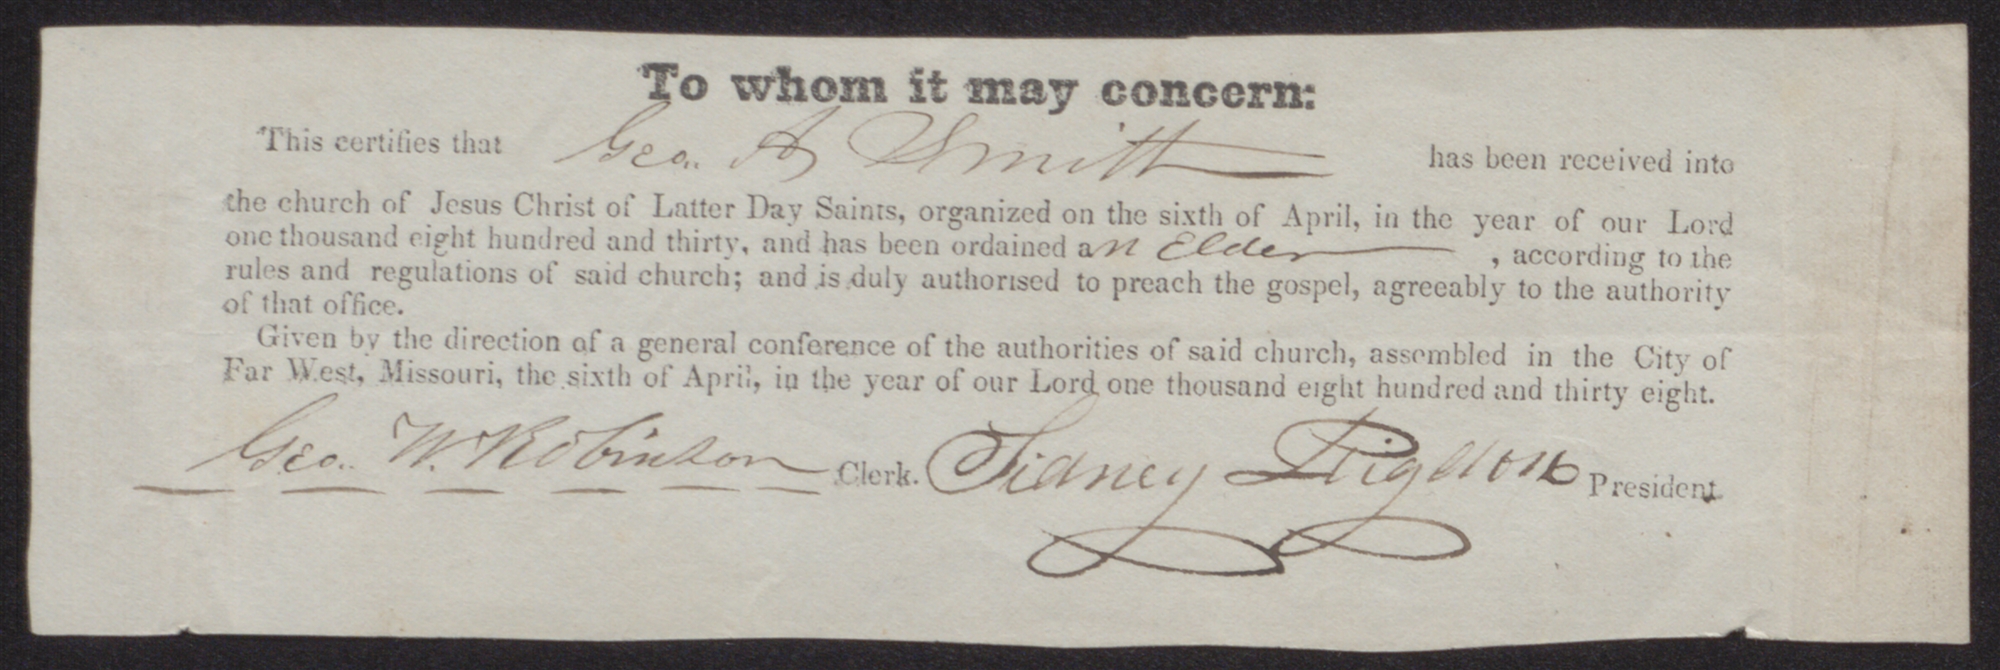 To whom it may concern:
This certifies that Geo. A Smith has been received into
the church of Jesus Christ of Latter Day Saints, organized on the sixth of April, in the year of our Lord
one thousand eight hundred and thirty, and has been ordained an Elder , according to the
rules and regulations of said church; and is duly authorised to preach the gospel, agreeably to the authority
of that office.
Given by the direction of a general conference of the authorities of said church, assembled in the City of
Far West, Missouri, the sixth of April, in the year of our Lord one thousand eight hundred and thirty eight.
Geo. W. Robinson Clerk. Sidney Rigdon President.